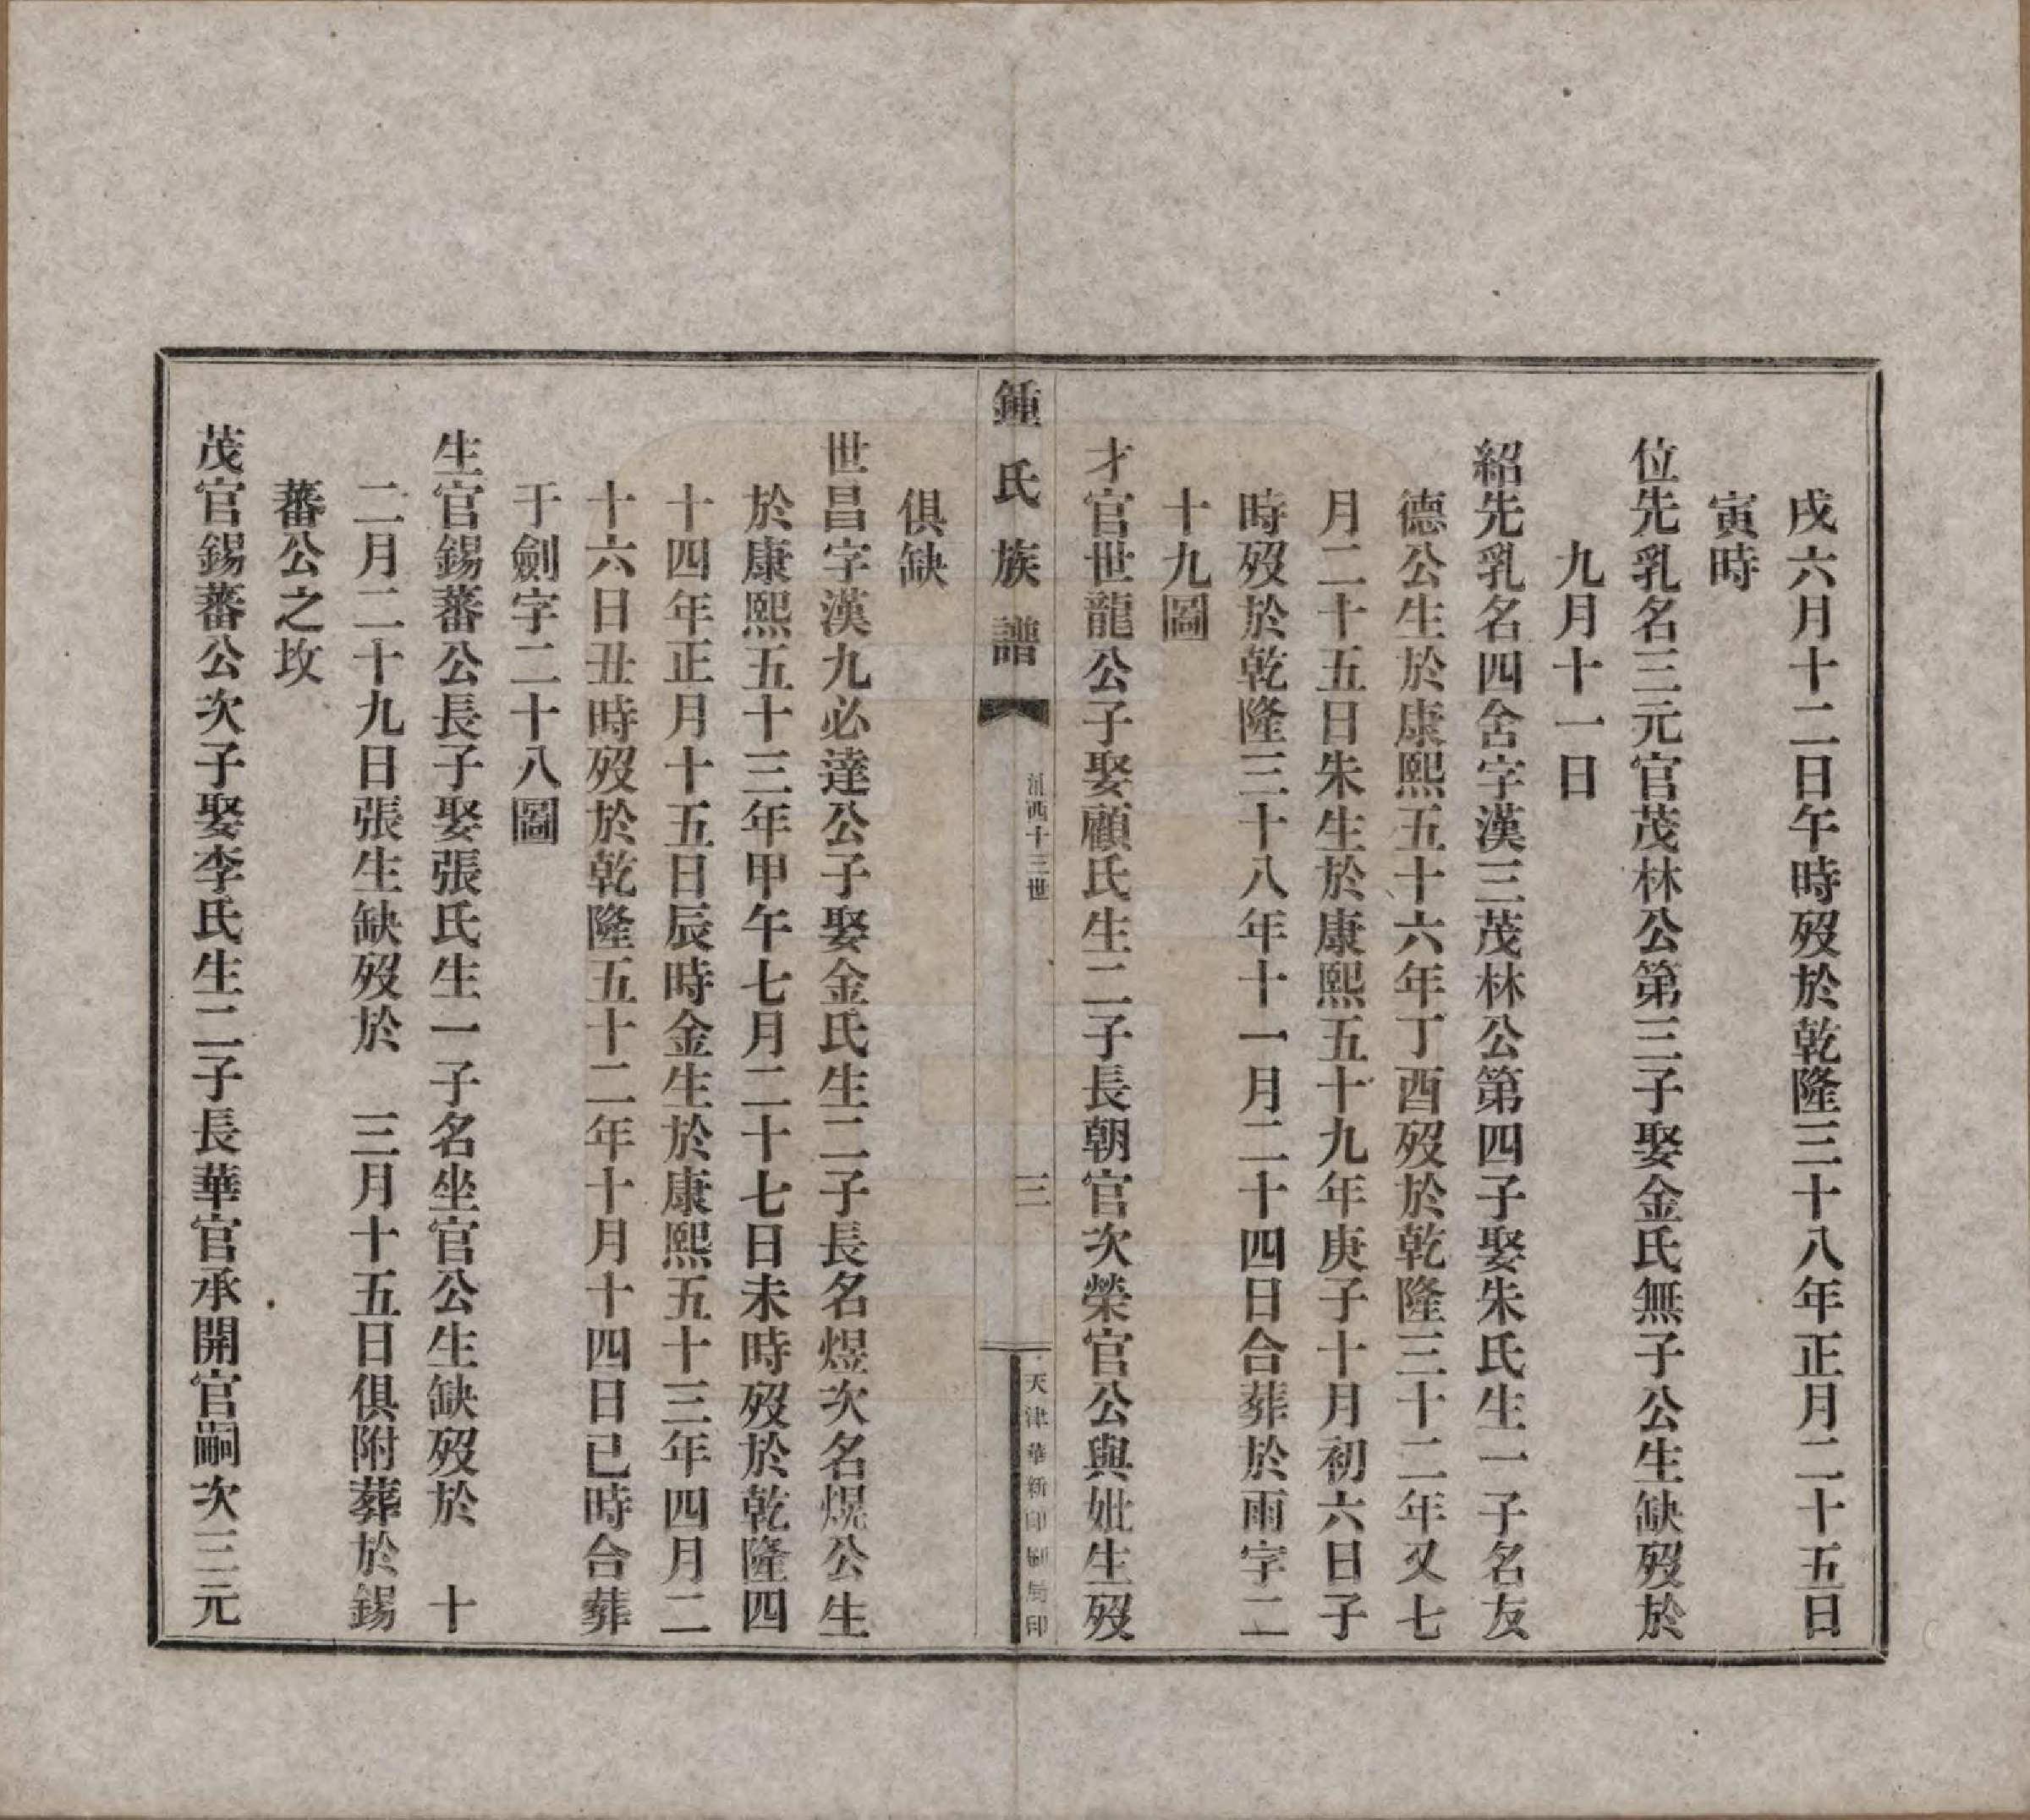 戌六月十二日午時歿於乾隆三十八年正月二十五日
寅時
位先乳名三元官茂林公第三子娶金氏無子公生缺歿於
九月十一日
紹先乳名四舍字漢三茂林公第四子娶朱氏生一子名友
德公生於康熙五十六年丁酉歿於乾隆三十二年又七
月二十五日朱生於康熙五十九年庚子十月初六日子
時歿於乾隆三十八年十一月二十四日合葬於雨字二
十九圖
才官世龍公子娶顧氏生二子長朝官次榮官公與妣生歿
鍾氏族譜
西十三世
三
天津華新印刷局印
俱缺
世昌字漢九必達公子娶金氏生二子長名煜次名熀公生
於康熙五十三年甲午七月二十七日未時歿於乾隆四
十四年正月十五日辰時金生於康熙五十三年四月二
十六日丑時歿於乾隆五十二年十月十四日已時合葬
于劍字二十八圖
生官錫蕃公長子娶張氏生一子名坐官公生缺歿於　十
二月二十九日張生缺歿於　三月十五日俱附葬於錫
蕃公之坟
茂官錫蕃公次子娶李氏生二子長華官承開官嗣次三元